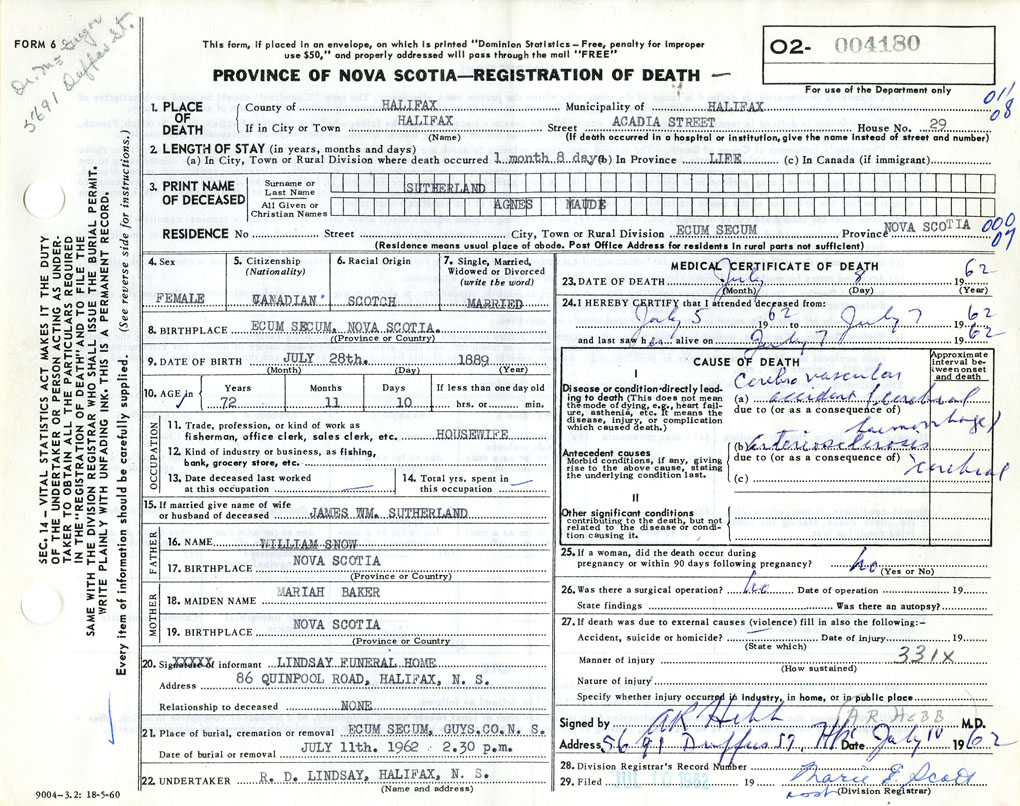 FORM 6
5691 Duffus St.
This form, if placed in an envelope, on which is printed "Dominion Statistics – Free, penalty for improper
use $50," and properly addressed will pass through the mail "FREE"
PROVINCE OF NOVA SCOTIA—REGISTRATION OF DEATH
O2- 004180
For use of the Department only
011
08
1. PLACE OF DEATH
County of HALIFAX Municipality of HALIFAX
If in City or Town HALIFAX Street ACADIA STREET House No. 29
(Name) (If death occurred in a hospital or institution, give the name instead of street and number)
2. LENGTH OF STAY (in years, months and days)
(a) In City, Town or Rural Division where death occurred 1 month 8 days (b) In Province LIFE (c) In Canada (if immigrant)
3. PRINT NAME OF DECEASED
Surname or Last Name SUTHERLAND
All Given or Christian Names AGNES MAUDE
RESIDENCE No Street City, Town or Rural Division ECUM SECUM Province NOVA SCOTIA
000
07
(Residence means usual place of abode. Post Office Address for residents in rural parts not sufficient)
4. Sex
FEMALE
5. Citizenship
(Nationality)
CANADIAN
6. Racial Origin
SCOTCH
7. Single, Married,
Widowed or Divorced
(write the word)
MARRIED
8. BIRTHPLACE ECUM SECUM, NOVA SCOTIA.
((Province or Country)
9. DATE OF BIRTH JULY 28th. 1889
(Month) (Day) (Year)
10. AGE in
Years Months Days If less than one day old
72 11 10 hrs. or min.
OCCUPATION
11. Trade, profession, or kind of work as
fisherman, office clerk, sales clerk, etc. HOUSEWIFE
12. Kind of industry or business, as fishing,
bank, grocery store, etc.
13. Date deceased last worked
at this occupation
14. Total yrs. spent in
this occupation
15. If married give name of wife
or husband of deceased JAMES WM. SUTHERLAND
FATHER
16. NAME WILLIAM SNOW
17. BIRTHPLACE NOVA SCOTIA
(Province or Country)
MOTHER
18. MAIDEN NAME MARIAH BAKER
19. BIRTHPLACE NOVA SCOTIA
(Province or Country)
20. Signature of informant LINDSAY FUNERAL HOME
Address 86 QUINPOOL ROAD, HALIFAX, N. S.
Relationship to deceased NONE
21. Place of burial, cremation or removal ECUM SECUM, GUYS.CO.N. S.
Date of burial or removal JULY 11th. 1962 2.30 p.m.
22. UNDERTAKER R. D. LINDSAY, HALIFAX, N. S.
(Name and address)
MEDICAL CERTIFICATE OF DEATH
23. DATE OF DEATH July 8 1962
(Month) (Day) (Year)
24. I HEREBY CERTIFY that I attended deceased from:
July 5 1962 to July 7 1962
and last saw her alive on July 7 1962
CAUSE OF DEATH
Approximate
interval be-
tween onset
and death
I
Disease or condition directly lead-
ing to death (This does not mean
the mode of dying, e.g., heart fail-
ure, asthenia, etc. It means the
disease, injury, or complication
which caused death.)
Cerebro vascular
(a) accident (cerebral
due to (or as a consequence of)
haemorrhage)
Antecedent causes
Morbid conditions, if any, giving
rise to the above cause, stating
the underlying condition last.
(b) arteriosclerosis
due to (or as a consequence of)
cerebral
(c)
II
Other significant conditions
contributing to the death, but not
related to the disease or condi-
tion causing it.
25. If a woman, did the death occur during
pregnancy or within 90 days following pregnancy? no (Yes or No)
26. Was there a surgical operation? no Date of operation 19
State findings Was there an autopsy?
27. If death was due to external causes (violence) fill in also the following:-
Accident, suicide or homicide? Date of injury 19
(State which)
Manner of injury 331X
(How sustained)
Nature of injury
Specify whether injury occurred in industry, in home, or in public place
Signed by AR Hebb (A.R. HEBB) M.D.
Address 5691 Duffus St, Hfx Date July 10 1962
28. Division Registrar's Record Number
29. Filed JUL 10 1962 19 Marie E. Scott
(Division Registrar)
SEC. 14 – VITAL STATISTICS ACT MAKES IT THE DUTY
OF THE UNDERTAKER OR PERSON ACTING AS UNDER-
TAKER TO OBTAIN ALL THE PARTICULARS REQUIRED
IN THE "REGISTRATION OF DEATH" AND TO FILE THE
SAME WITH THE DIVISION REGISTRAR WHO SHALL ISSUE THE BURIAL PERMIT.
WRITE PLAINLY WITH UNFADING INK. THIS IS A PERMANENT RECORD.
Every item of information should be carefully supplied. (See reverse side for instructions.)
9004-3.2: 18-5-60